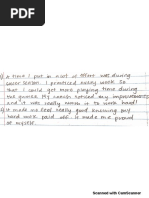 1) A time I put in a lot of effort was during
soccer season. I practiced every week so
that I could get more playing time during
the games. My coach noticed my improvements
and it was really worth it to work hard!
2) It made me feel really good knowing my
hard work paid off. It made me proud
of myself.
Scanned with CamScanner